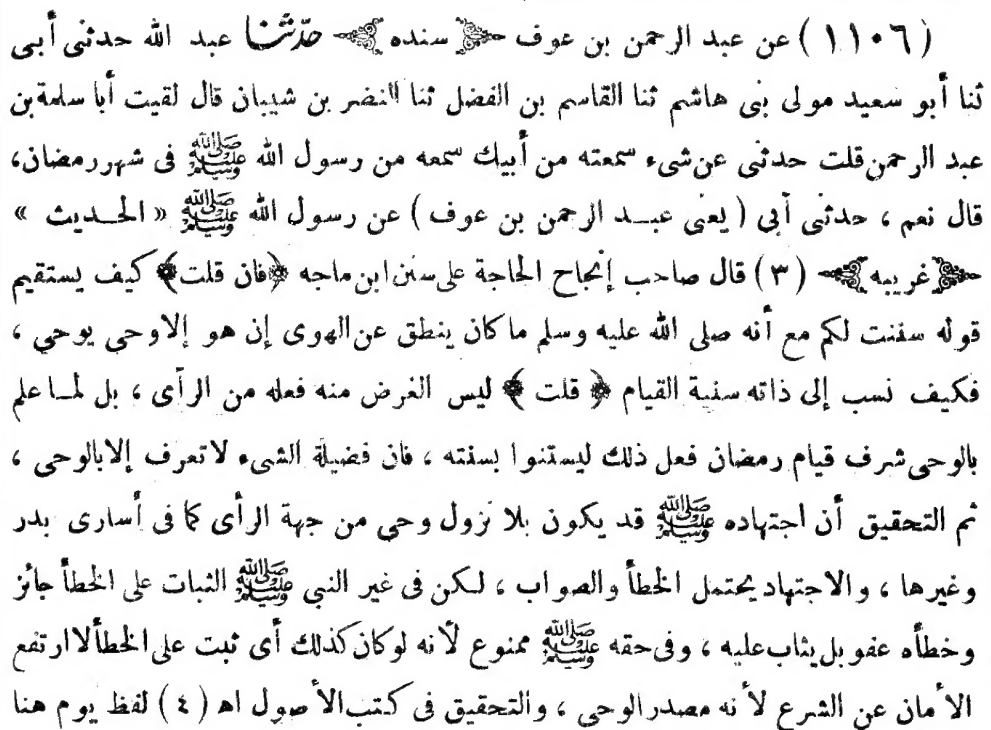 (١١٠٦) عن عبد الرحمن بن عوف ﴿سنده﴾ حدّثنا عبد الله حدثنى أبى
ثنا أبو سعيد مولى بنى هاشم ثنا القاسم بن الفضل ثنا النضر بن شيبان قال لقيت أبا سلمة بن
عبد الرحمن قلت حدثنى عن شىء سمعته من أبيك سمعه من رسول الله ﷺ فى شهر رمضان،
قال نعم ، حدثنى أبى ( يعنى عبــد الرحمن بن عوف ) عن رسول الله ﷺ « الحــديث »
﴿غريبه﴾ (٣) قال صاحب إنجاح الحاجة على سنن ابن ماجه ﴿فان قلت﴾ كيف يستقيم
قوله سننت لكم مع أنه صلى الله عليه وسلم ما كان ينطق عن الهوى إن هو إلا وحى يوحى ،
فكيف نسب إلى ذاته سنية القيام ﴿ قلت ﴾ ليس الغرض منه فعله من الرأى ، بل لمــا علم
بالوحى شرف قيام رمضان فعل ذلك ليستنوا بسنته ، فان فضيلة الشىء لا تعرف إلا بالوحى ،
ثم التحقيق أن اجتهاده ﷺ قد يكون بلا نزول وحى من جهة الرأى كما فى أسارى بدر
وغيرها ، والاجتهاد يحتمل الخطأ والصواب ، لــكن فى غير النبى ﷺ الثبات على الخطأ جائز
وخطأه عفو بل يثاب عليه ، وفى حقه ﷺ ممنوع لأنه لو كان كذلك أى ثبت على الخطأ لا ارتفع
الأمان عن الشرع لأنه مصدر الوحى ، والتحقيق فى كتب الأصول اه (٤) لفظ يوم هنا